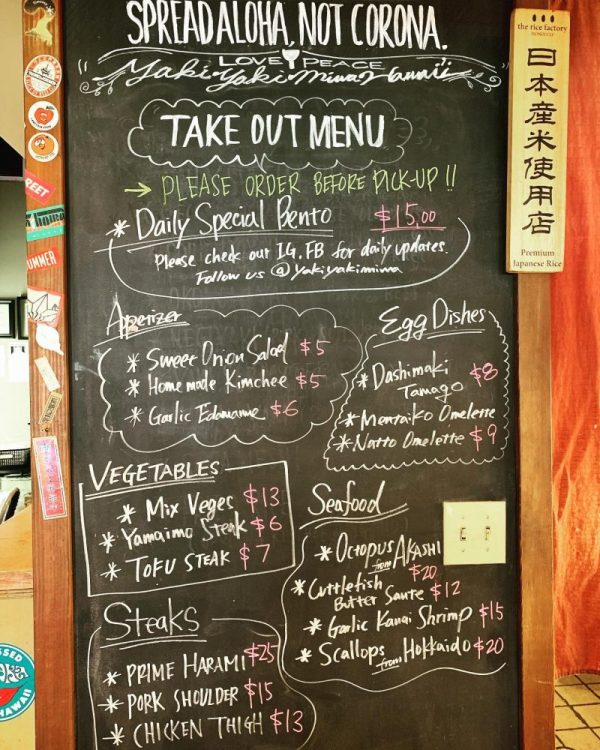 SPREAD ALOHA, NOT CORONA.
LOVE PEACE
Yaki Yaki Miwa Hawaii
TAKE OUT MENU
→ PLEASE ORDER BEFORE PICK-UP !!
* Daily Special Bento $15.00
Please check out IG, FB for daily updates.
Follow us @yakiyakimiwa
Appetizer
* Sweet Onion Salad $5
* Homemade Kimchee $5
* Garlic Edamame $6
Egg Dishes
* Dashimaki Tamago $8
* Mentaiko Omelette
* Natto Omelette $9
VEGETABLES
* Mix Veges $13
* Yamaimo Steak $6
* TOFU STEAK $7
Seafood
* Octopus from AKASHI $20
* Cuttlefish Butter Saute $12
* Garlic Kauai Shrimp $15
* Scallops from Hokkaido $20
Steaks
* PRIME HARAMI $25
* PORK SHOULDER $15
* CHICKEN THIGH $13
the rice factory
HONOLULU
日本産米使用店
Premium
Japanese Rice
REET
UMMER
HAWAII